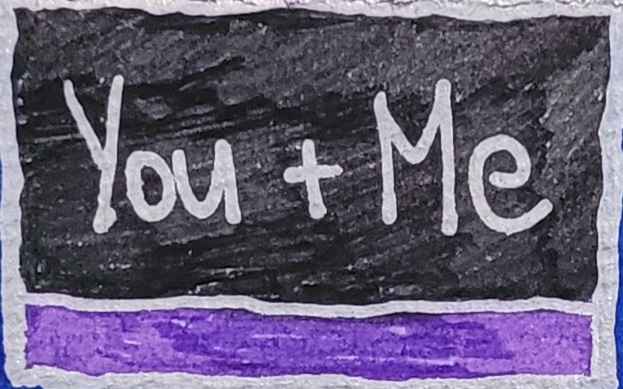 You + Me